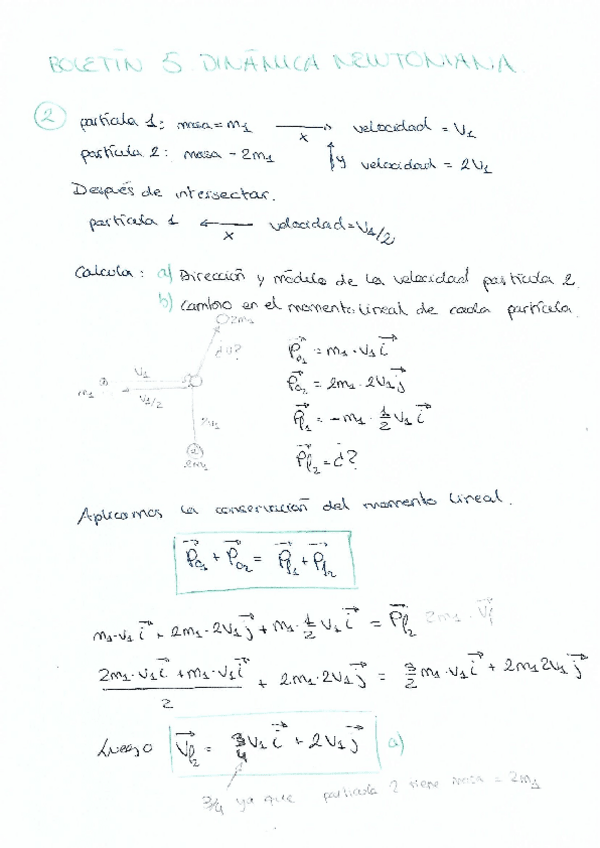 BOLETÍN 5. DINÁMICA NEWTONIANA.
② partícula 1: masa = m₁ ⟶ x velocidad = V₁
partícula 2: masa - 2m₁ ↑y velocidad = 2V₁
Después de intersectar.
partícula 1 ⟵ x velocidad = V₁/2
Calcula: a) Dirección y módulo de la velocidad partícula 2.
b) Cambio en el momento lineal de cada partícula.
2m₁
¿v?
V₁
m₁
V₁/2
2V₁
2
2m₁
P⃗₀₁ = m₁ · V₁ i⃗
P⃗₀₂ = 2m₁ · 2V₁ j⃗
P⃗f₁ = -m₁ · 1/2 V₁ i⃗
P⃗f₂ = ¿?
Aplicamos la conservación del momento lineal.
P⃗₀₁ + P⃗₀₂ = P⃗f₁ + P⃗f₂
m₁·V₁ i⃗ + 2m₁·2V₁ j⃗ + m₁·1/2 V₁ i⃗ = P⃗f₂ 2m₁ · V⃗f
(2m₁·V₁ i⃗ + m₁·V₁ i⃗)/2 + 2m₁·2V₁ j⃗ = 3/2 m₁·V₁ i⃗ + 2m₁2V₁ j⃗
Luego V⃗f₂ = 3/4 V₁ i⃗ + 2V₁ j⃗ a)
3/4 ya que partícula 2 tiene masa = 2m₁